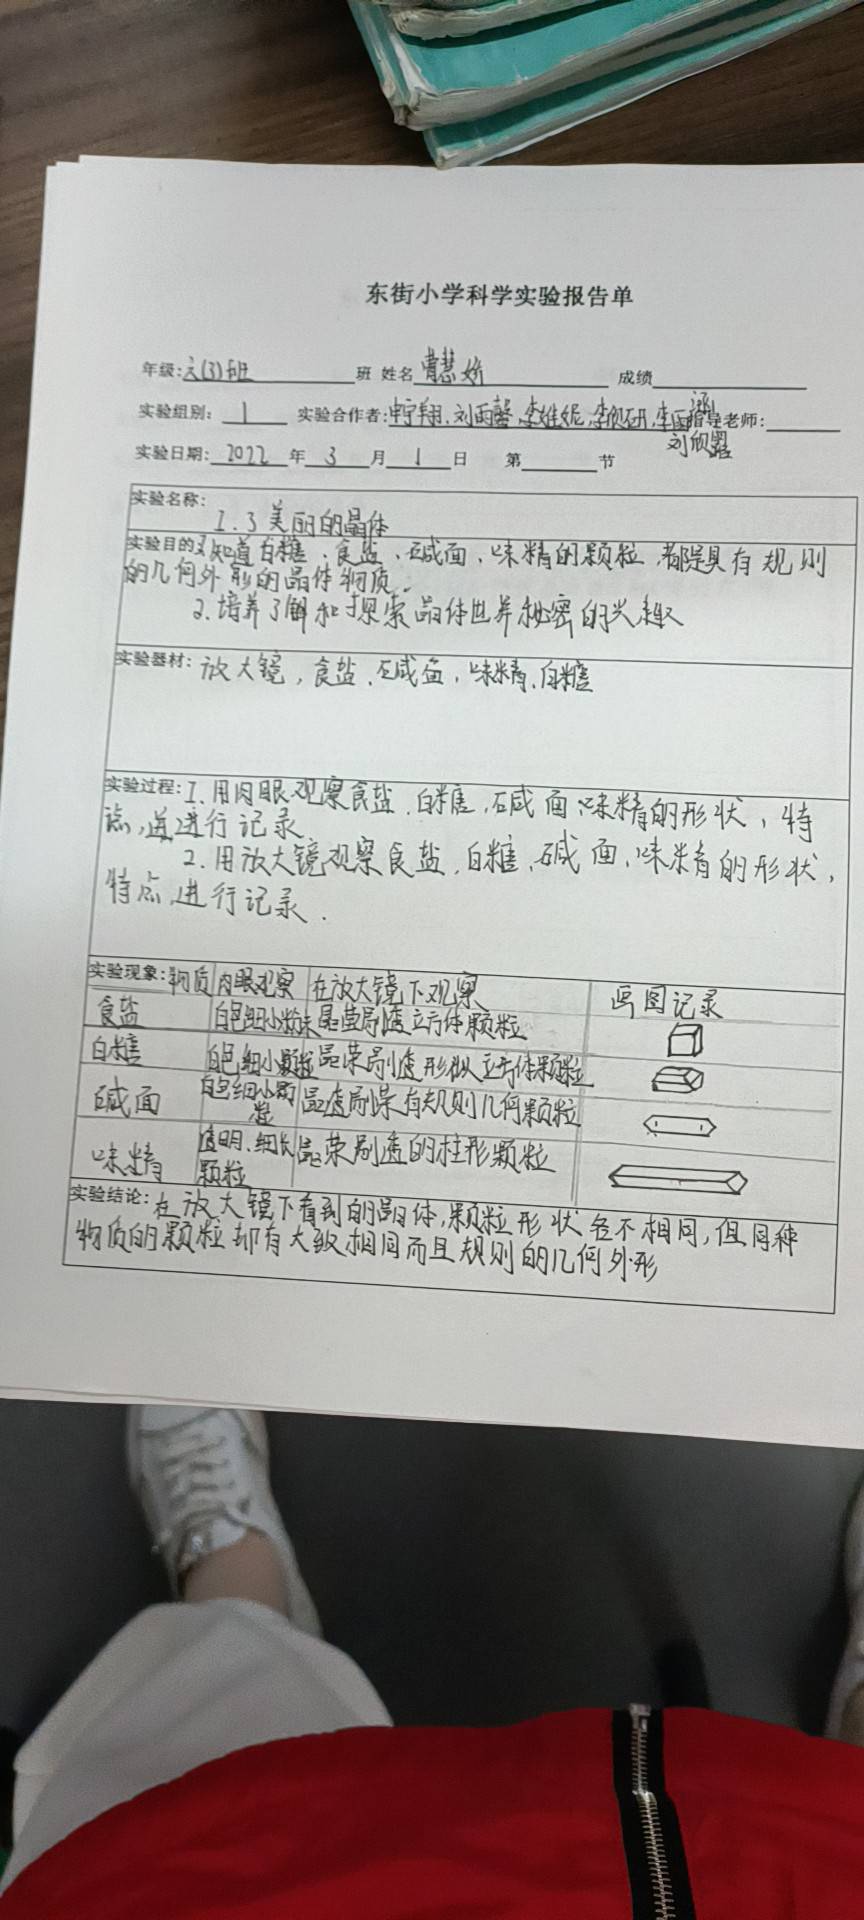 东街小学科学实验报告单
年级:六(3)班 班 姓名 曹慧娇 成绩
实验组别: 1 实验合作者:申宇翔、刘雨馨、李佳妮、李欣研、李雨涵 指导老师:
刘欣
实验日期: 2022 年 3 月 1 日 第 节
实验名称:
1.3 美丽的晶体
实验目的 知道白糖、食盐、碱面、味精的颗粒,都是具有规则
的几何外形的晶体物质.
2.培养了解和探索晶体世界秘密的兴趣
实验器材: 放大镜,食盐、碱面,味精、白糖
实验过程:1、用肉眼观察食盐、白糖、碱面、味精的形状,特
点,进行记录.
2.用放大镜观察食盐、白糖、碱面、味精的形状,
特点,进行记录.
实验现象:物质 肉眼观察 在放大镜下观察 画图记录
食盐 白色细小粉末 晶莹剔透立方体颗粒
白糖 白色细小颗粒 晶荣剔透形似立方体颗粒
碱面 白色细小颗粒 有规则几何颗粒
味精 透明、细长颗粒 晶荣剔透的柱形颗粒
实验结论:在放大镜下看到的晶体,颗粒形状各不相同,但同种
物质的颗粒却有大致相同而且规则的几何外形